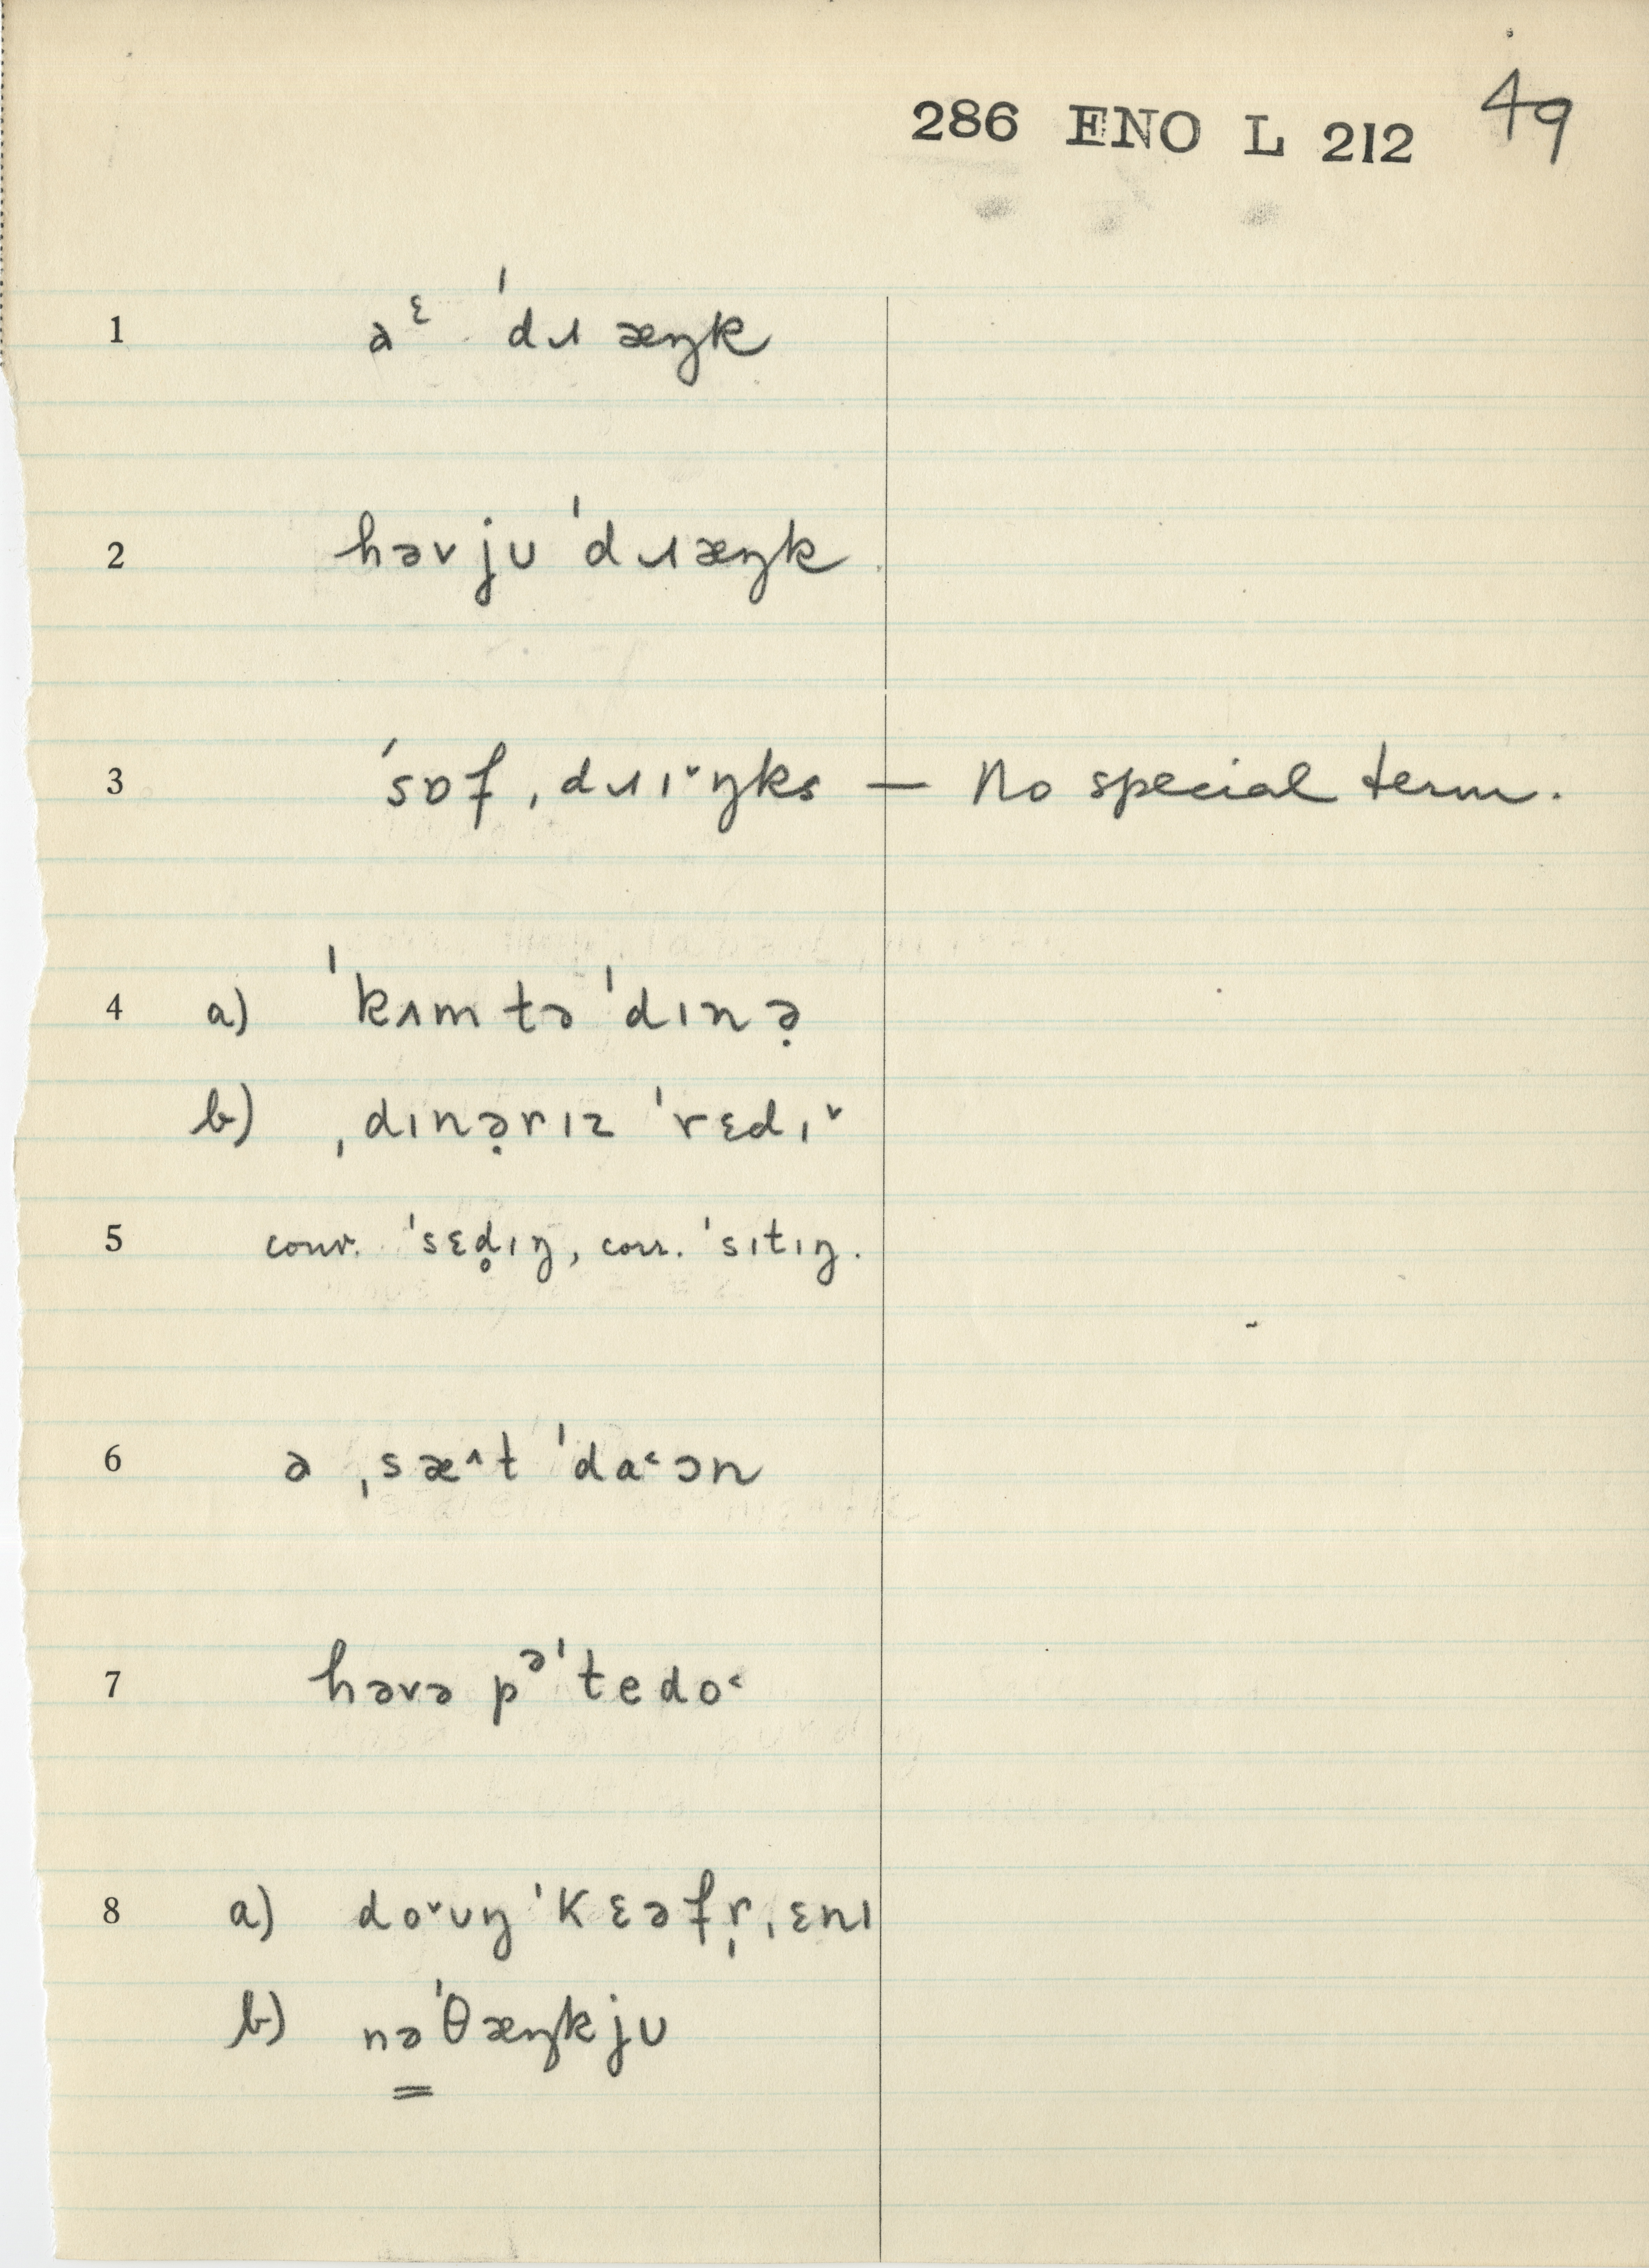 286 ENO L 212 49
1 aᵋ ˈdɹæŋk
2 həvjʊ ˈdɹæŋk
3 ˈsɒf ˌdɹɪ˅ŋks — No special term.
4 a) ˈkʌm tə ˈdɪnə̣
b) ˌdɪnə̣rɪz ˈrɛdɪ˅
5 conv. ˈsɛd̥ɪŋ, corr. ˈsɪtɪŋ.
6 ə ˌsæ˄t ˈda˂ɔn
7 həvə pᵊˈtedo˂
8 a) do˅ʊŋ ˈkɛəfr̩ˌɛnɪ
b) nəˈθæŋkjʊ